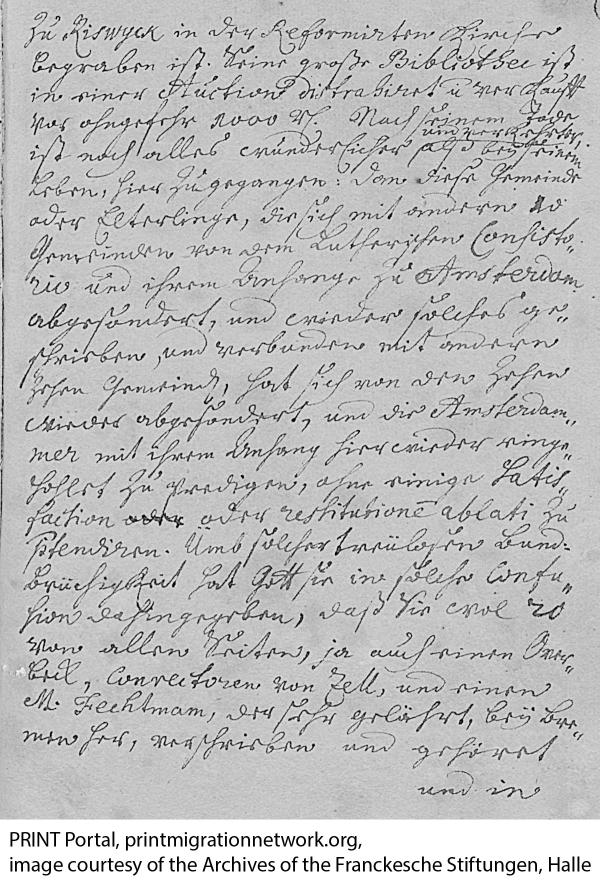 Zu Riswyck in der Reformirten Kirche
begraben ist. Seine große Bibliothec ist
in einer Auction distrahiret u verkaufft
vor ohngefehr 1000 rh. Nach seinem Tode
ist noch alles wunderlicher und verkehrter, als bey seinem
Leben, hier zugegangen: Dan diese Gemeinde
oder Elterlinge, die sich mit andern 10
Gemeinden von dem Lutherischen Consisto-
rio und ihrem Anhange zu Amsterdam
abgesondert, und wieder solches ge-
schrieben, und verbunden mit andern
Zehen Gemeind, hat sich von den Zehen
wieder abgesondert, und die Amsterdam-
mer mit ihrem Anhang hier wieder einge-
hohlet zu predigen, ohne einige Satis-
faction oder restitutione ablati zu
Umb solcher treulosen Bund-
brüchigkeit hat Gott sie in solche Confu-
sion dahingegeben, daß Sie wol 20
von allen Seiten, ja auch einen Over-
beck, Conrectoren von Zell, und einen
M. Fechtmam, der sehr gelährt, bey Bre-
men her, verschrieben und gehöret
und in
PRINT Portal, printmigrationnetwork.org,
image courtesy of the Archives of the Franckesche Stiftungen, Halle